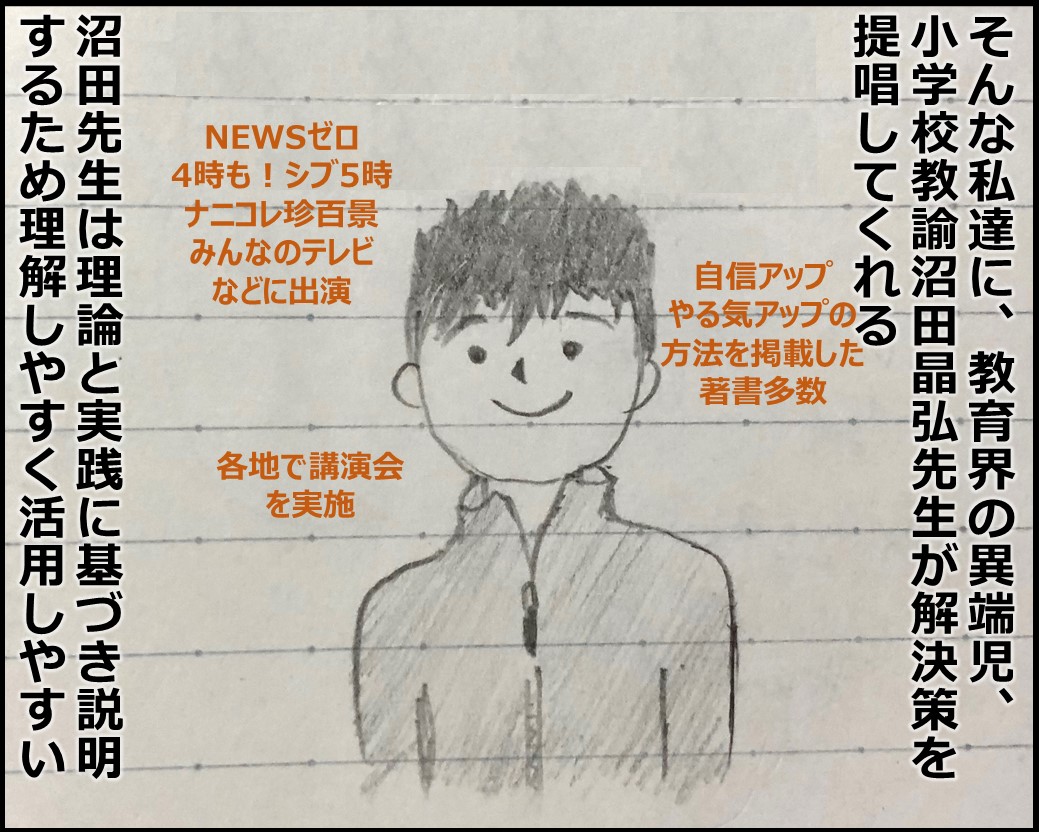 そんな私達に、教育界の異端児、
小学校教諭沼田晶弘先生が解決策を
提唱してくれる
NEWSゼロ
4時も！シブ5時
ナニコレ珍百景
みんなのテレビ
などに出演
自信アップ
やる気アップの
方法を掲載した
著書多数
各地で講演会
を実施
沼田先生は理論と実践に基づき説明
するため理解しやすく活用しやすい